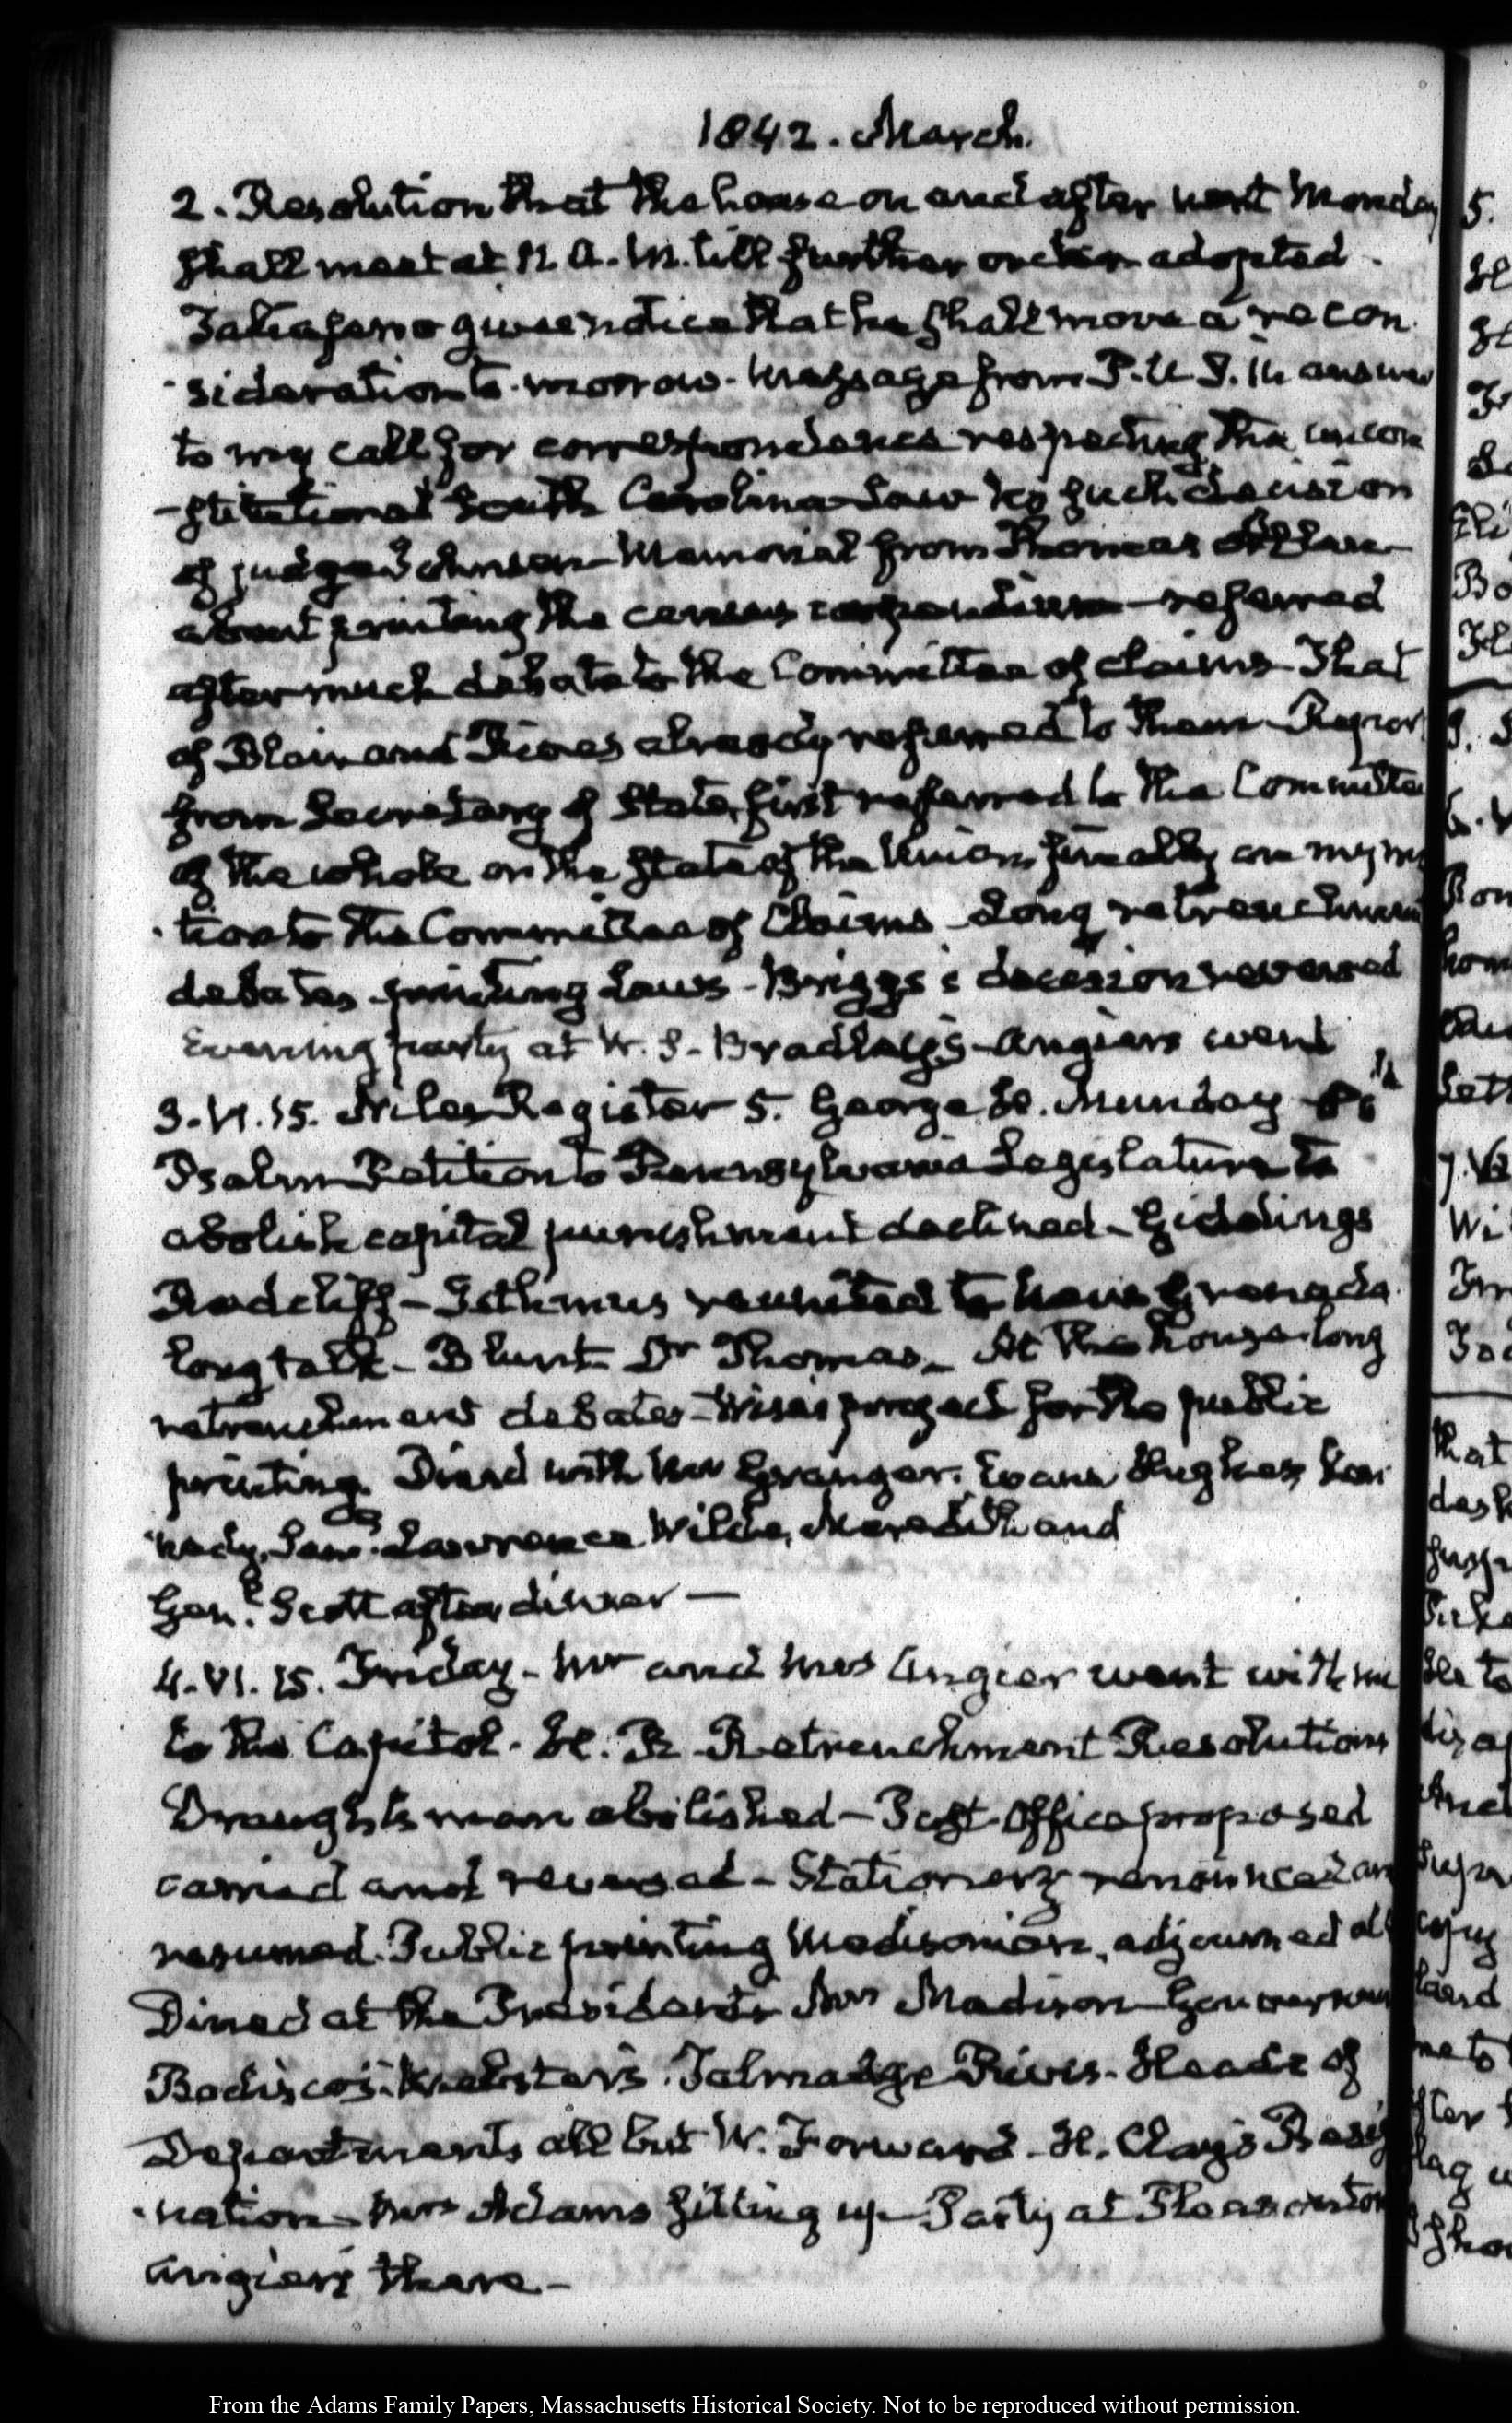 1842. March.
2. Resolution that the house on and after next Monday
shall meet at 11. A. M. till further order adopted.
Taliaferro gives notice that he shall move a recon
-sideration to-morrow. Message from P. U S. in answer
to my call for correspondence respecting the uncon
-stitutional South Carolina Law no such decision
of judge Johnson Memorial from Thomas Allen
about printing the census compendium referred
after much debate to the Committee of claims That
of Blair and Rives already referred to them Repor
from Secretary of State, first referred to the Committee
of the whole on the State of the Union finally on my mo
-tion to the Committee of Claims Long retrenchment
debates printing Laws - Briggs's decision reversed
Evening party at W. S. Bradley's Angiers went
3. VI. 15. Niles Register 5. George H. Munday 86th
Psalm Petition to Pennsylvania Legislature to
abolish capital punishment declined - Giddings
Radcliff - Isthmus reunited to New Grenada
long talk - Blunt Dr Thomas - At the house long
retrenchment debates - Wise's project for the public
printing. Dined with Mr Granger. Evans Hughes Ken
-nedy, Saml. Lawrence Wilde, Meredith and
Genl. Scott after dinner —
4. VI. 15. Friday - Mr and Mrs Angier went with me
to the Capitol. H. R. Retrenchment Resolutions
Draughtsman abolished - Post-Office proposed
carried and reversed - Stationery renounced an
resumed. Public printing Madisonian, adjourned
Dined at the President's Mrs Madison Gouverneur
Bodisco's. Webster's. Talmadge Rives. Heads of
Departments all but W. Forward. H. Clay's Resig
-nation - Mrs Adams sitting up - Party at Pleasanton
Angiers there -
From the Adams Family Papers, Massachusetts Historical Society. Not to be reproduced without permission.